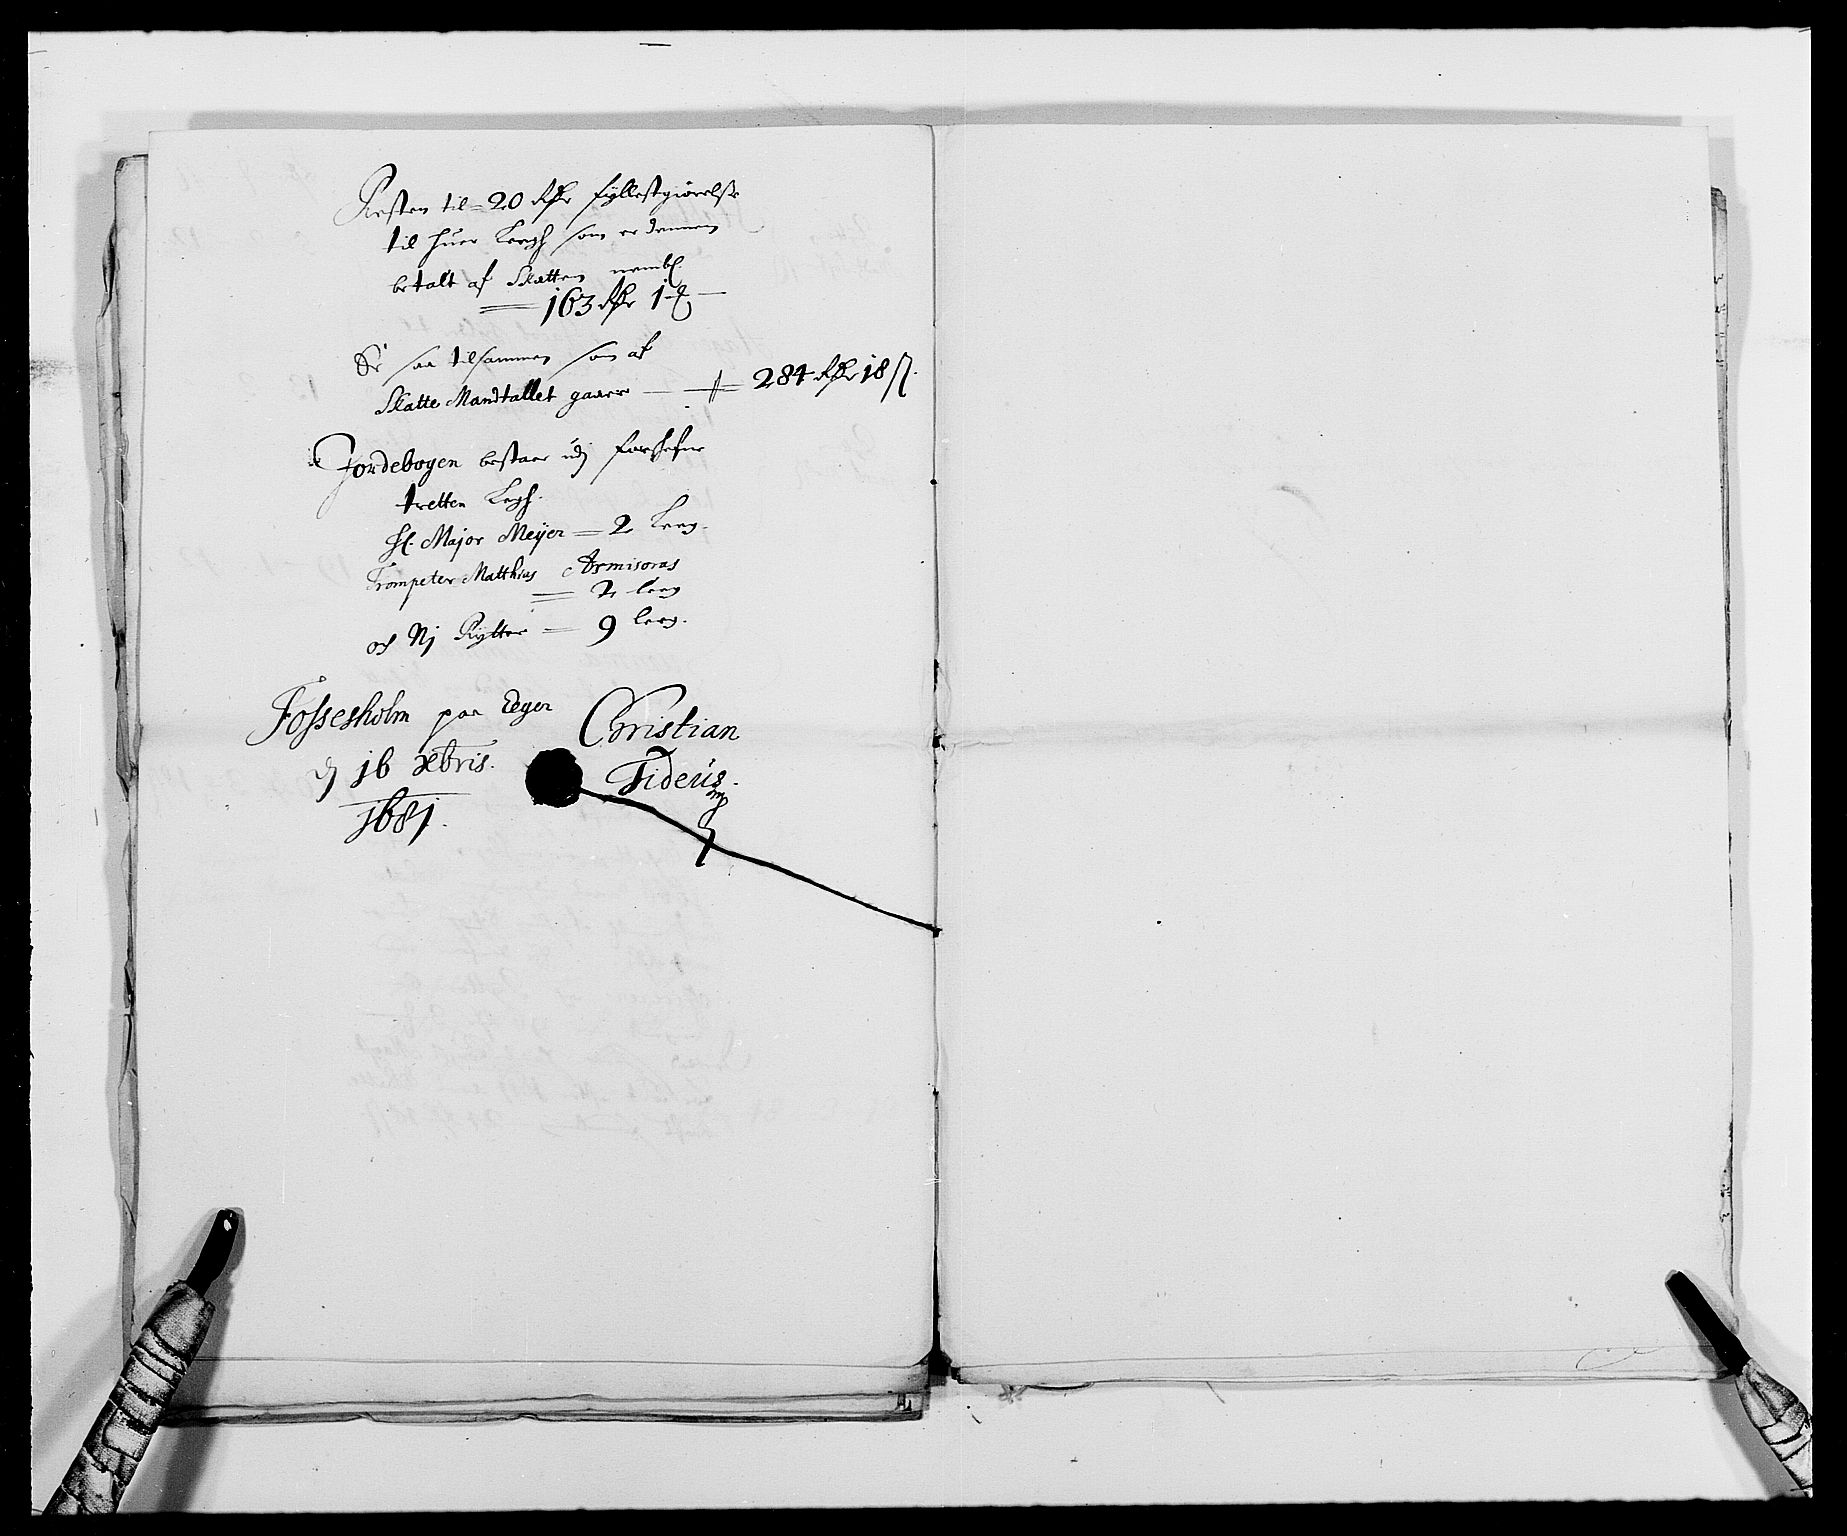 Resten til 20 Rdr fyllestgiørelse
til huer Legh som er dennem
betalt af Skatten nembl
163 Rdr 1
Er saa tilsammen som af
Skatte Mandtallet gaaer 284 Rdr 18 ß.
Jordebogen bestaar udj
tretten Legh.
Hl. Major Meÿer = 2 Læg.
Trompeter Matthias Armisoras
= 2 læg
och Nj Rytter = 9 læg.
Fossesholm paa Eger
d 16 xbris.
1681.
Christian
Fideus.
mp